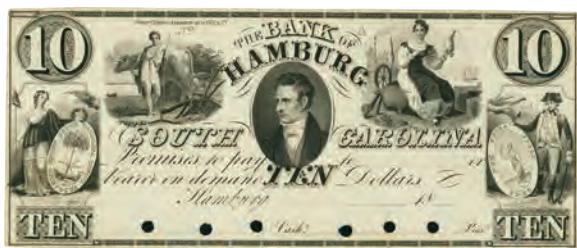 10 THE BANK OF 10
HAMBURG
SOUTH CAROLINA
Promises to pay to or
bearer on demand TEN Dollars
Hamburg 18
TEN Cash.r Pres. TEN